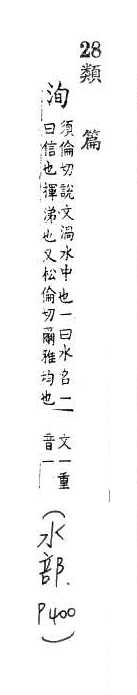 28類篇
洵
須倫切說文渦水中也一曰水名一
曰信也揮涕也又松倫切爾雅均也
文一重
音一
(水部.
P400)